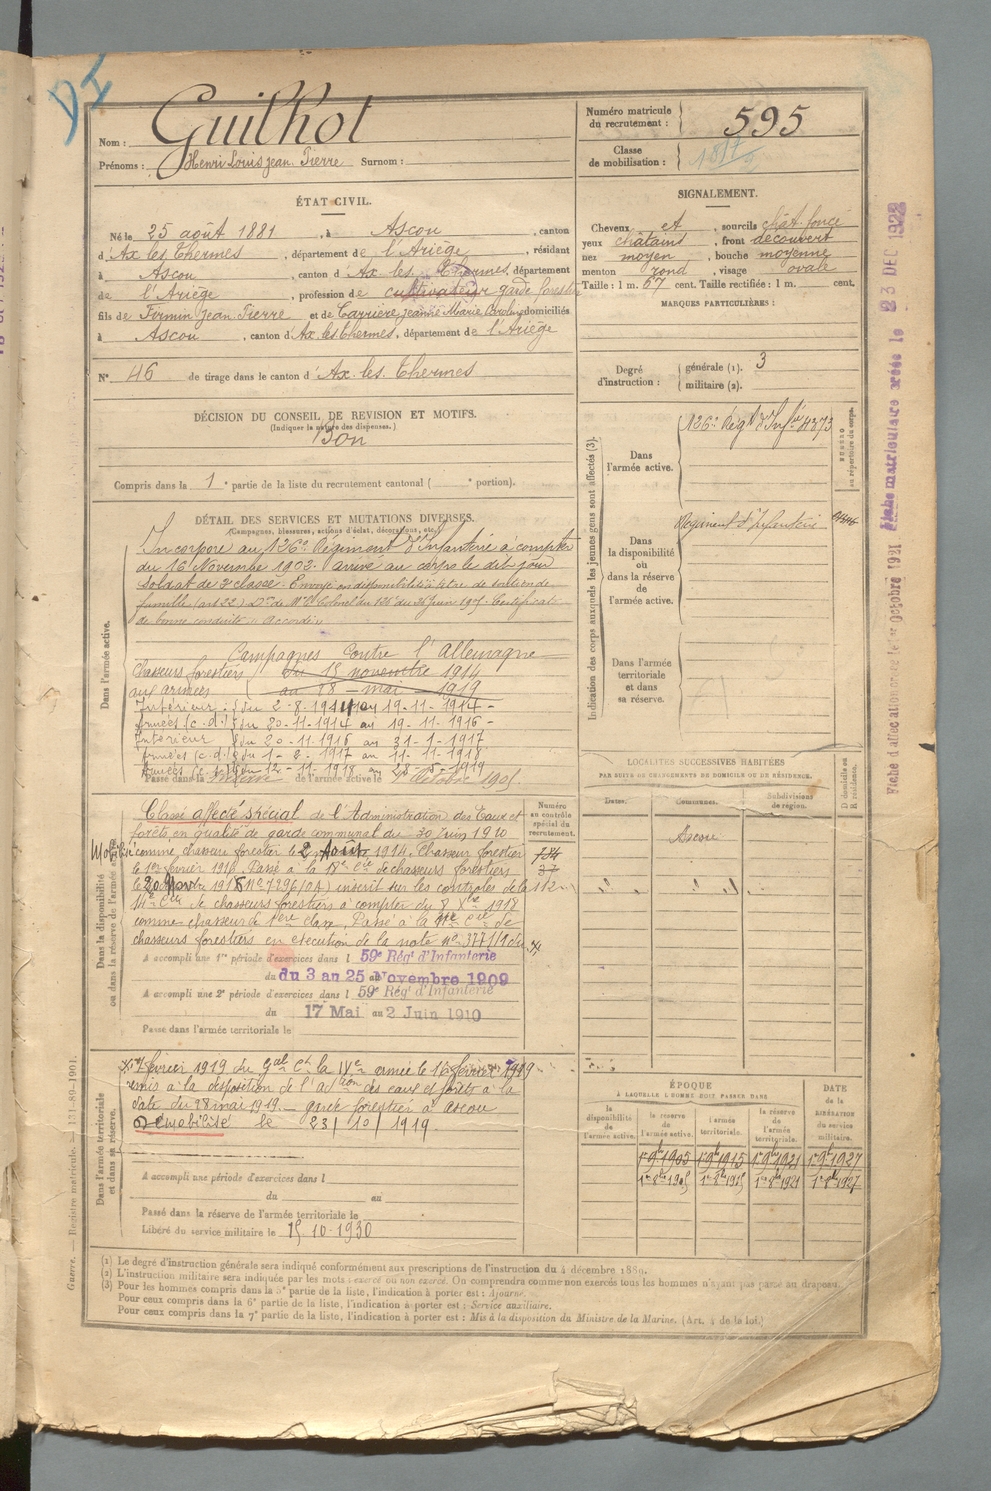 DI
Nom : Guilhot
Prénoms : Henri Louis jean Pierre Surnom :
Numéro matricule du recrutement : 595
Classe de mobilisation :
ÉTAT CIVIL.
Né le 25 août 1881, à Ascou, canton
d'Ax les Thermes, département de l'Ariège, résidant
à Ascou, canton d'Ax les Thermes, département
de l'Ariège, profession de cultivateur garde forestier
fils de Firmin jean Pierre et de Carrière jeanne Marie Caroline domiciliés
à Ascou, canton d'Ax les Thermes, département de l'Ariège
N° 46 de tirage dans le canton d'Ax les Thermes
SIGNALEMENT.
Cheveux et, sourcils chât. foncé
yeux châtains, front découvert
nez moyen, bouche moyenne
menton rond, visage ovale
Taille : 1 m. 67 cent. Taille rectifiée : 1 m. cent.
MARQUES PARTICULIÈRES :
Degré d'instruction : générale (1). 3
militaire (2).
DÉCISION DU CONSEIL DE REVISION ET MOTIFS.
(Indiquer la nature des dispenses.)
Bon
Compris dans la 1e partie de la liste du recrutement cantonal ( e portion).
DÉTAIL DES SERVICES ET MUTATIONS DIVERSES.
(Campagnes, blessures, actions d'éclat, décorations, etc.)
Dans l'armée active.
Incorporé au 126e Régiment d'Infanterie à compter
du 16 Novembre 1902. arrivé au corps le dit jour
soldat de 2e classe. Envoyé en disponibilité à titre de soutien de
famille (art 22)
de bonne conduite "Accordé"
Campagnes Contre l'Allemagne
Chasseurs forestiers du 18 novembre 1914
aux armées au 28 mai 1919
Intérieur : du 2-8-1914 au 19-11-1914
Armées (c.d.) du 20-11-1914 au 19-11-1916
Intérieur du 20-11-1916 au 31-1-1917
Armées (c.d.) du 1-2-1917 au 11-11-1918
du 12-11-1918 au 28-5-1919
Passé dans la réserve de l'armée active le 1er Octobre 1905.
Dans la disponibilité ou dans la réserve de l'armée active.
Classé affecté spécial de l'Administration des Eaux et
forêts, en qualité de garde communal du 30 Juin 1910
Mobilisé comme chasseur forestier le 2 Août 1914. Chasseur forestier
le 1er février 1916. Passé à la 18e Cie de chasseurs forestiers
inscrit sur les contrôles de la
14e Cie de chasseurs forestiers à compter du 8 Xbre 1918
comme chasseur de 1ère classe. Passé à la Cie de
chasseurs forestiers en exécution de la note n° 3771/1 du
A accompli une 1re période d'exercices dans l 59e Régt d'Infanterie
du 3 au 25 Novembre 1909
A accompli une 2e période d'exercices dans l 59e Régt d'Infanterie
du 17 Mai au 2 Juin 1910
Passé dans l'armée territoriale le
Numéro au contrôle spécial du recrutement.
734
37
112
Dans l'armée territoriale et dans sa réserve.
février 1919 du Gal Ct la IVe armée le 16 février 1919
remis à la disposition de l'adtion des eaux et forêts à la
date du 28 mai 1919 — garde forestier à Ascou
Démobilisé le 23/10/1919.
A accompli une période d'exercices dans l
du au
Passé dans la réserve de l'armée territoriale le
Libéré du service militaire le 15-10-1930
Indication des corps auxquels les jeunes gens sont affectés (3).
Dans l'armée active. 126e Régt d'Infie 4373
NUMÉRO au répertoire du corps.
Dans la disponibilité ou dans la réserve de l'armée active. Régiment d'Infanterie
Dans l'armée territoriale et dans sa réserve.
LOCALITÉS SUCCESSIVES HABITÉES
PAR SUITE DE CHANGEMENTS DE DOMICILE OU DE RÉSIDENCE.
Dates. Communes. Subdivisions de région. D domicile ou R résidence.
Ascou
ÉPOQUE
À LAQUELLE L'HOMME DOIT PASSER DANS
la disponibilité de l'armée active. la réserve de l'armée active. l'armée territoriale. la réserve de l'armée territoriale. DATE de la LIBÉRATION du service militaire.
1er 9bre 1905 1er 9bre 1915 1er 9bre 1921 1er 9bre 1927
1er 8bre 1905 1er 8bre 1915 1er 8bre 1921 1er 8bre 1927
(1) Le degré d'instruction générale sera indiqué conformément aux prescriptions de l'instruction du 4 décembre 1889.
(2) L'instruction militaire sera indiquée par les mots : exercé ou non exercé. On comprendra comme non exercés tous les hommes n'ayant pas passé au drapeau.
(3) Pour les hommes compris dans la 5e partie de la liste, l'indication à porter est : Ajourné.
Pour ceux compris dans la 6e partie de la liste, l'indication à porter est : Service auxiliaire.
Pour ceux compris dans la 7e partie de la liste, l'indication à porter est : Mis à la disposition du Ministre de la Marine. (Art. 4 de la loi.)
Guerre. — Registre matricule. — 131-89-1901.
Fiche d'affectation créée le 1er Octobre 1921 Fiche matriculaire créée le 23 DEC 1922